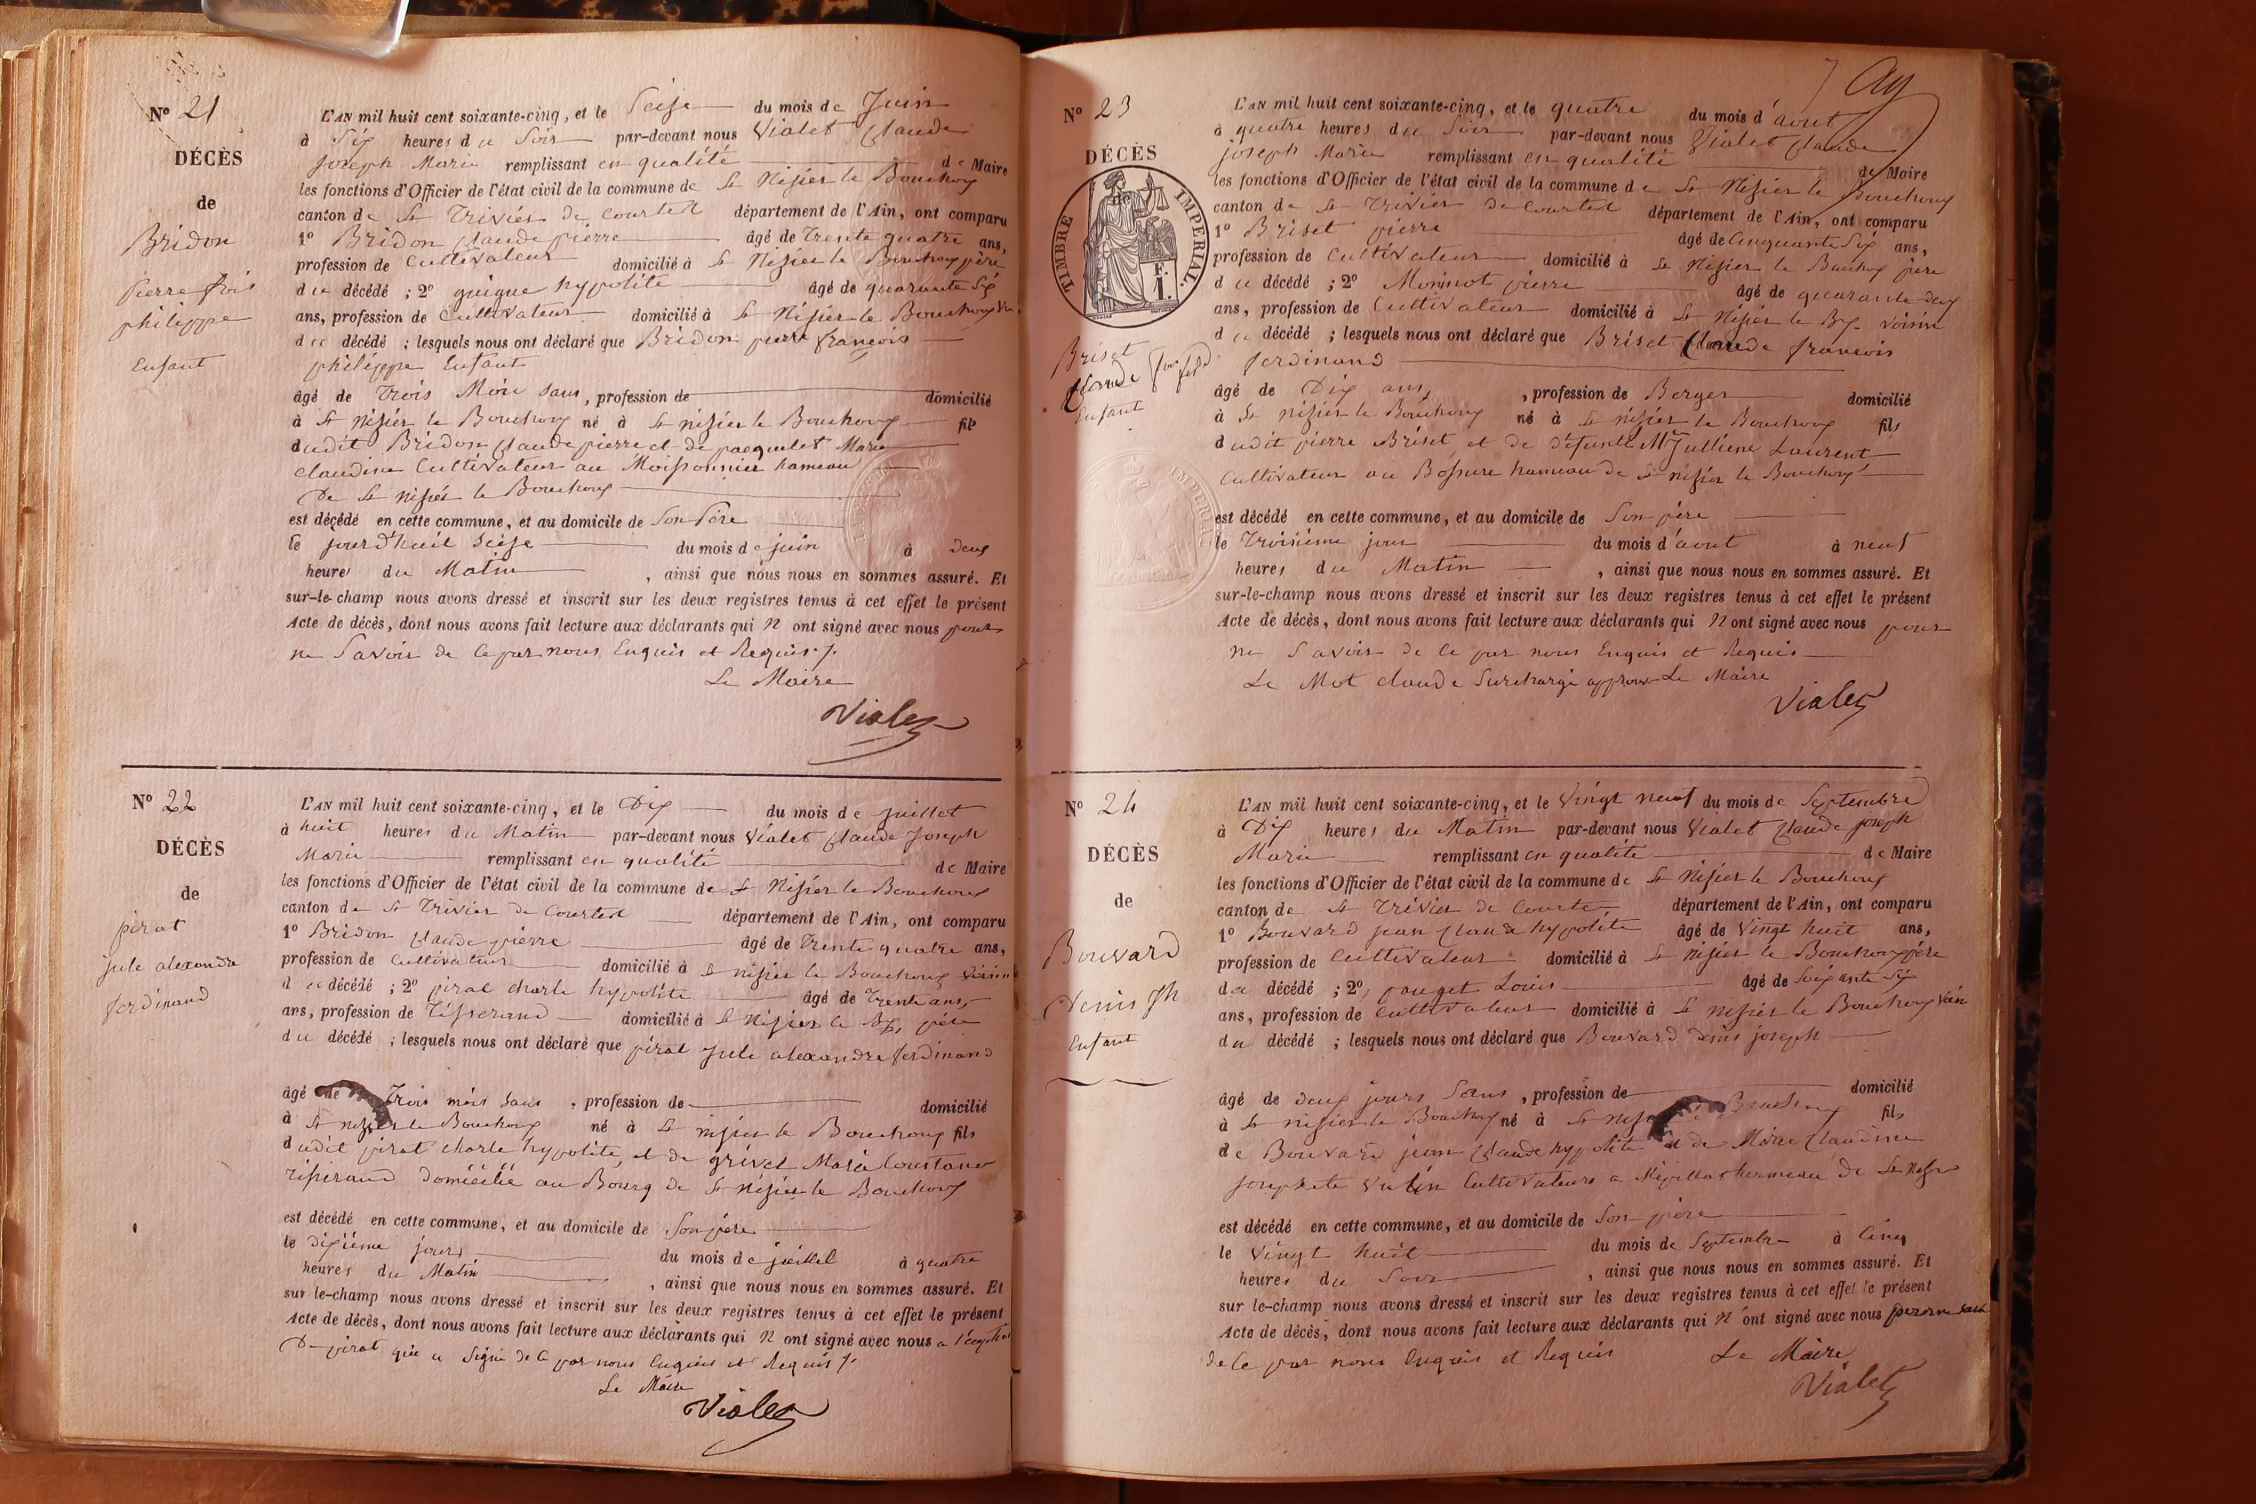 Nº 21
DÉCÈS
de
Bridon
pierre frois
philippe
Enfant
L'AN mil huit cent soixante-cinq, et le Seise du mois de Juin
à Six heures du Soir par-devant nous Vialet Claude
Joseph Marie remplissant en qualité de Maire
les fonctions d'Officier de l'état civil de la commune de St Nisier le Bouchoux
canton de St Trivier de Courtes département de l'Ain, ont comparu
1º Bridon Claude pierre âgé de Trente quatre ans,
profession de Cultivateur domicilié à St Nisier le Bouchoux père
du décédé ; 2º guigue hypolite âgé de quarante Six
ans, profession de Cultivateur domicilié à St Nisier le Bouchoux
du décédé ; lesquels nous ont déclaré que Bridon pierre françois
philippe Enfant
âgé de Trois Mois Sans, profession de domicilié
à St Nisier le Bouchoux né à St nisier le Bouchoux fils
dudit Bridon Claude pierre et de pacquelet Marie
Claudine Cultivateur au Moissonnier hameau
De St nisier le Bouchoux
est décédé en cette commune, et au domicile de Son Père
le jourd'huit Seise du mois de juin à deux
heures du Matin, ainsi que nous nous en sommes assuré. Et
sur-le-champ nous avons dressé et inscrit sur les deux registres tenus à cet effet le présent
Acte de décès, dont nous avons fait lecture aux déclarants qui N ont signé avec nous pour
ne Savoir de Ce par nous Enquis et Requis ./.
Le Maire
Vialet
Nº 22
DÉCÈS
de
pirat
jule alexandre
ferdinand
L'AN mil huit cent soixante-cinq, et le Dix du mois de juillet
à huit heures du Matin par-devant nous Vialet Claude Joseph
Marie remplissant en qualité de Maire
les fonctions d'Officier de l'état civil de la commune de St Nisier le Bouchoux
canton de St Trivier de Courtes département de l'Ain, ont comparu
1º Bridon Claude pierre âgé de Trente quatre ans,
profession de Cultivateur domicilié à St nisier le Bouchoux Voisin
du décédé ; 2º pirat charle hypolite âgé de Trente ans
ans, profession de Tisserand domicilié à St Nisier le Bx père
du décédé ; lesquels nous ont déclaré que pirat jule alexandre ferdinand
âgé de Trois mois Sans, profession de domicilié
à St nisier le Bouchoux né à St nisier le Bouchoux fils
dudit pirat charle hypolite, et de grivet Marie Constance
Tisserand domicilié au Bourg de St Nisier le Bouchoux
est décédé en cette commune, et au domicile de Son père
le dixième jour du mois de juillet à quatre
heures du Matin, ainsi que nous nous en sommes assuré. Et
sur le-champ nous avons dressé et inscrit sur les deux registres tenus à cet effet le présent
Acte de décès, dont nous avons fait lecture aux déclarants qui N ont signé avec nous a l'éxeption
De pirat qui a Signé de Ce par nous Enquis et Requis ./.
Le Maire
Vialet
Ay
Nº 23
DÉCÈS
de
TIMBRE IMPERIAL.
F.
1.
Briset
Claude
Enfant
L'AN mil huit cent soixante-cinq, et le quatre du mois d'aout
à quatre heures du Soir par-devant nous Vialet Claude
joseph Marie remplissant en qualité de Maire
les fonctions d'Officier de l'état civil de la commune de St Nisier le Bouchoux
canton de St Trivier de Courtes département de l'Ain, ont comparu
1º Briset pierre âgé de Cinquante Six ans,
profession de Cultivateur domicilié à St Nisier le Bouchoux père
du décédé ; 2º Moninot pierre âgé de quarante deux
ans, profession de Cultivateur domicilié à St Nisier le Bx Voisin
du décédé ; lesquels nous ont déclaré que Briset Claude françois
ferdinand
âgé de Dix ans, profession de Berger domicilié
à St nisier le Bouchoux né à St nisier le Bouchoux fils
dudit pierre Briset et de défunte Mie Julliene Laurent
Cultivateur au Bossure hameau de St nisier le Bouchoux
est décédé en cette commune, et au domicile de Son père
le Troisième jour du mois d'aout à neuf
heures du Matin, ainsi que nous nous en sommes assuré. Et
sur-le-champ nous avons dressé et inscrit sur les deux registres tenus à cet effet le présent
Acte de décès, dont nous avons fait lecture aux déclarants qui N ont signé avec nous pour
ne Savoir de Ce par nous Enquis et Requis
Le Mot claude Surchargé approuvé Le Maire
Vialet
Nº 24
DÉCÈS
de
Bouvard
Denis jph
Enfant
L'AN mil huit cent soixante-cinq, et le Vingt neuf du mois de Septembre
à Dix heures du Matin par-devant nous Vialet Claude joseph
Marie remplissant en qualité de Maire
les fonctions d'Officier de l'état civil de la commune de St Nisier le Bouchoux
canton de St Trivier de Courtes département de l'Ain, ont comparu
1º Bouvard jean Claude hypolite âgé de Vingt huit ans,
profession de Cultivateur domicilié à St nisier le Bouchoux père
du décédé ; 2º, pauget Louis âgé de Soixante Six
ans, profession de Cultivateur domicilié à St nisier le Bouchoux Voisin
du décédé ; lesquels nous ont déclaré que Bouvard denis joseph
âgé de deux jours Sans, profession de domicilié
à St nisier le Bouchoux né à St nisier le Bouchoux fils
de Bouvard jean Claude hypolite et de Marie Claudine
josephete Cultivateurs a hameau de St nisier
est décédé en cette commune, et au domicile de Son père
le Vingt huit du mois de Septembre à Cinq
heures du Soir, ainsi que nous nous en sommes assuré. Et
sur le-champ nous avons dressé et inscrit sur les deux registres tenus à cet effet le présent
Acte de décès, dont nous avons fait lecture aux déclarants qui N ont signé avec nous
de Ce par nous Enquis et Requis Le Maire
Vialet